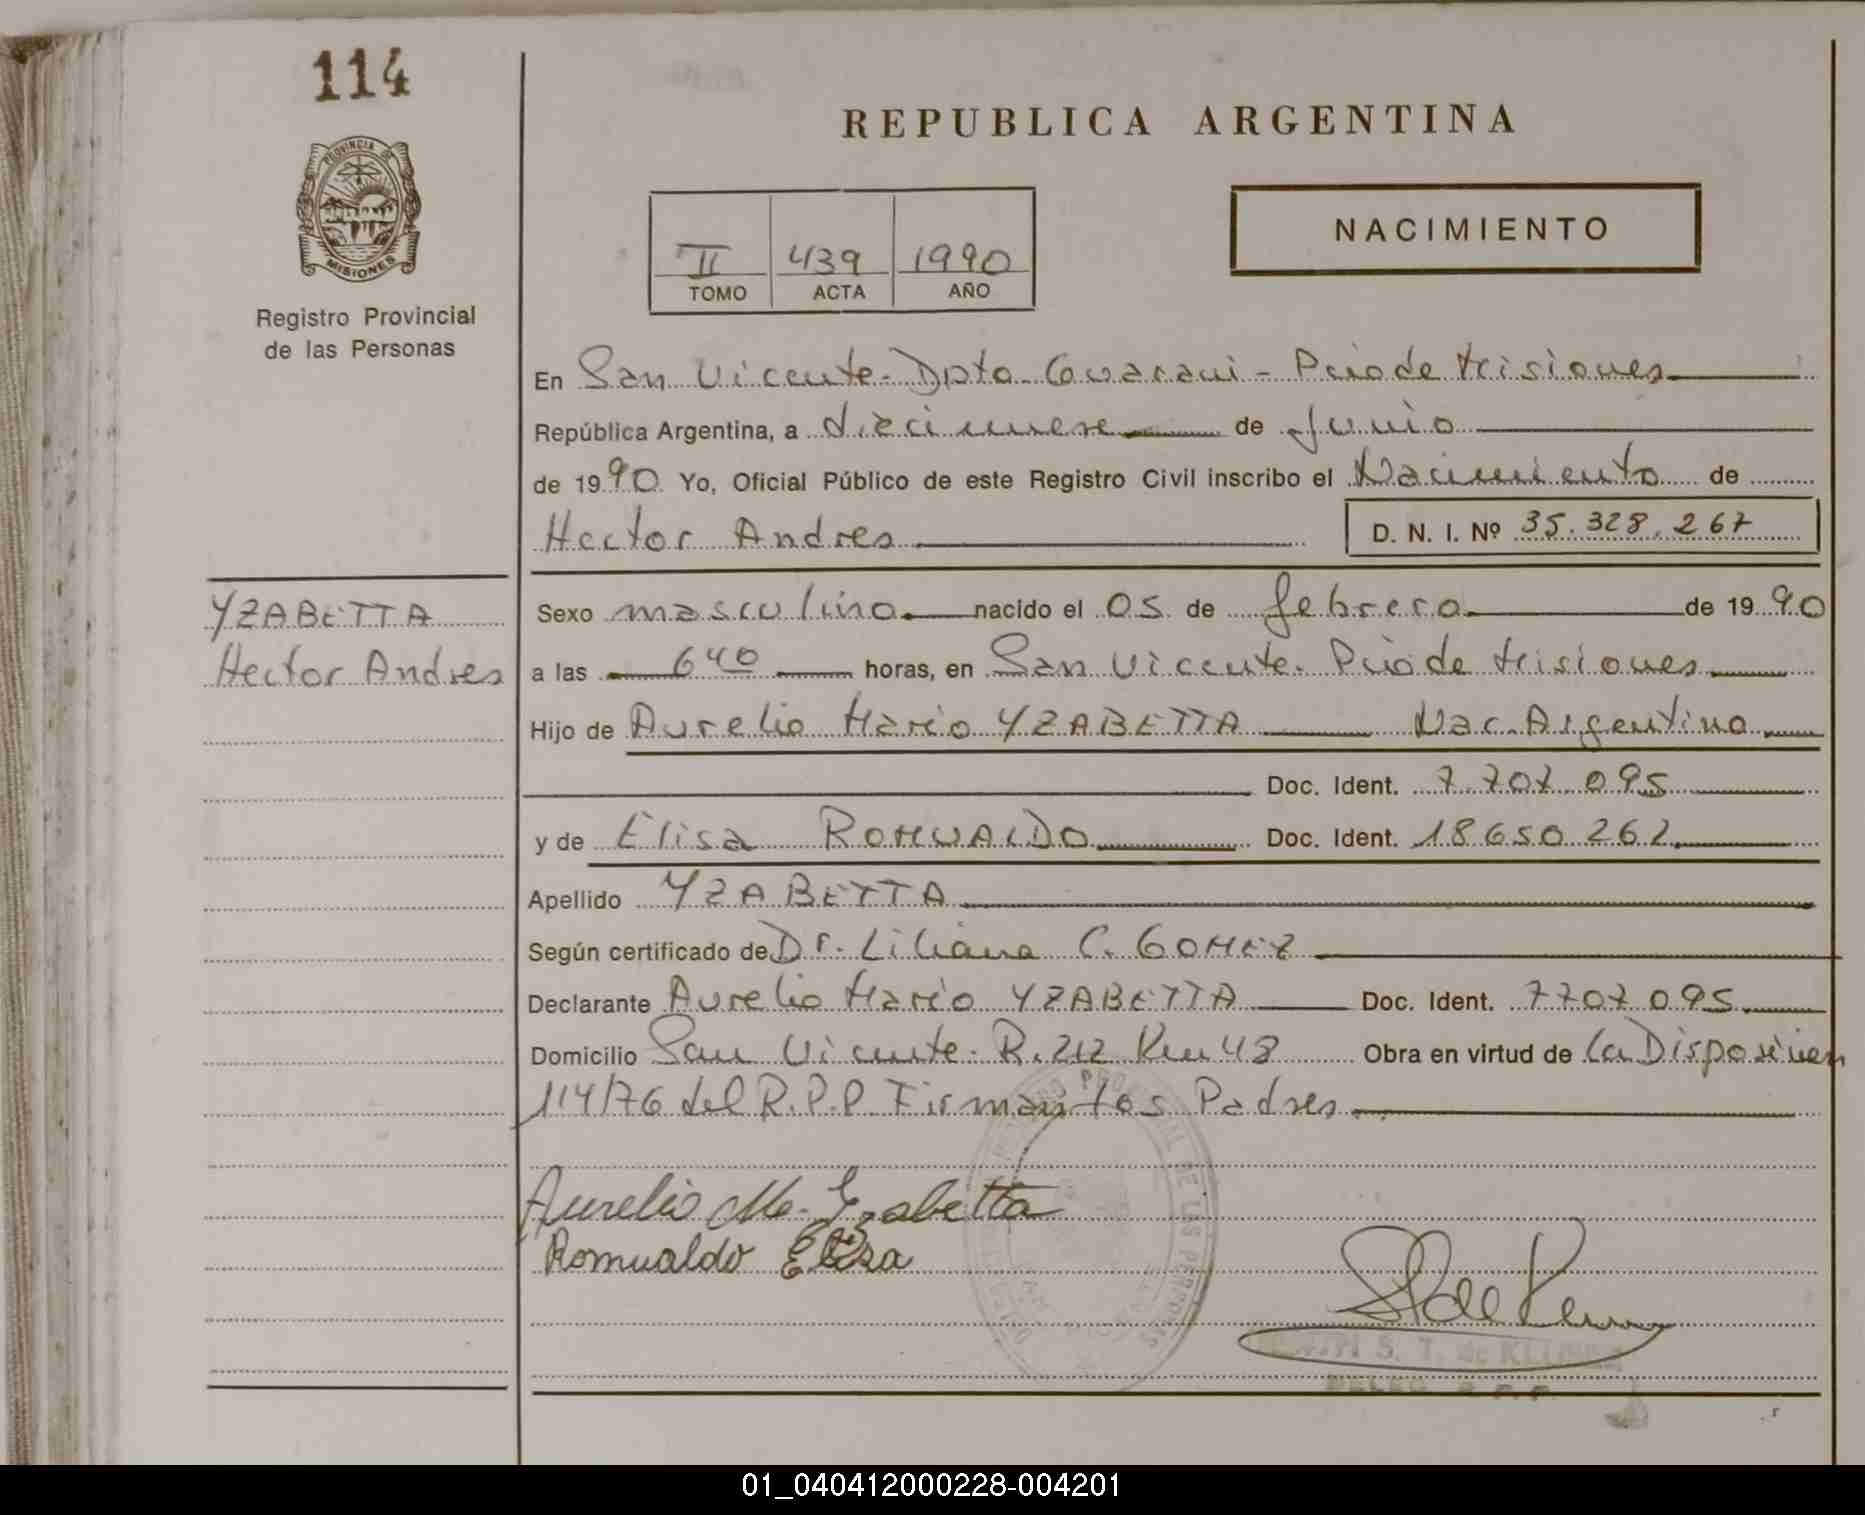 114
REPUBLICA ARGENTINA
PROVINCIA DE
MISIONES
Registro Provincial
de las Personas
NACIMIENTO
II 439 1990
TOMO ACTA AÑO
En San Vicente - Dpto Guarani - Pcia de Misiones
República Argentina, a diecinueve de Junio
de 1990 Yo, Oficial Público de este Registro Civil inscribo el Nacimiento de
Hector Andres D. N. I. Nº 35.328.267
YZABETTA
Hector Andres
Sexo masculino nacido el 05 de febrero de 1990
a las 640 horas, en San Vicente. Pcia de Misiones
Hijo de Aurelio Mario YZABETTA Nac. Argentina
Doc. Ident. 7.707.095
y de Elisa ROMUALDO Doc. Ident. 18650262
Apellido YZABETTA
Según certificado de Dr. Liliana C. GOMEZ
Declarante Aurelio Mario YZABETTA Doc. Ident. 7707095
Domicilio San Vicente - R. 212 Km 48 Obra en virtud de la Disposicion
114/76 del R.P.P. Firman los Padres
Aurelio M. Yzabetta
Romualdo Elisa
S. T. de
DELEG. R.P.P.
01_040412000228-004201